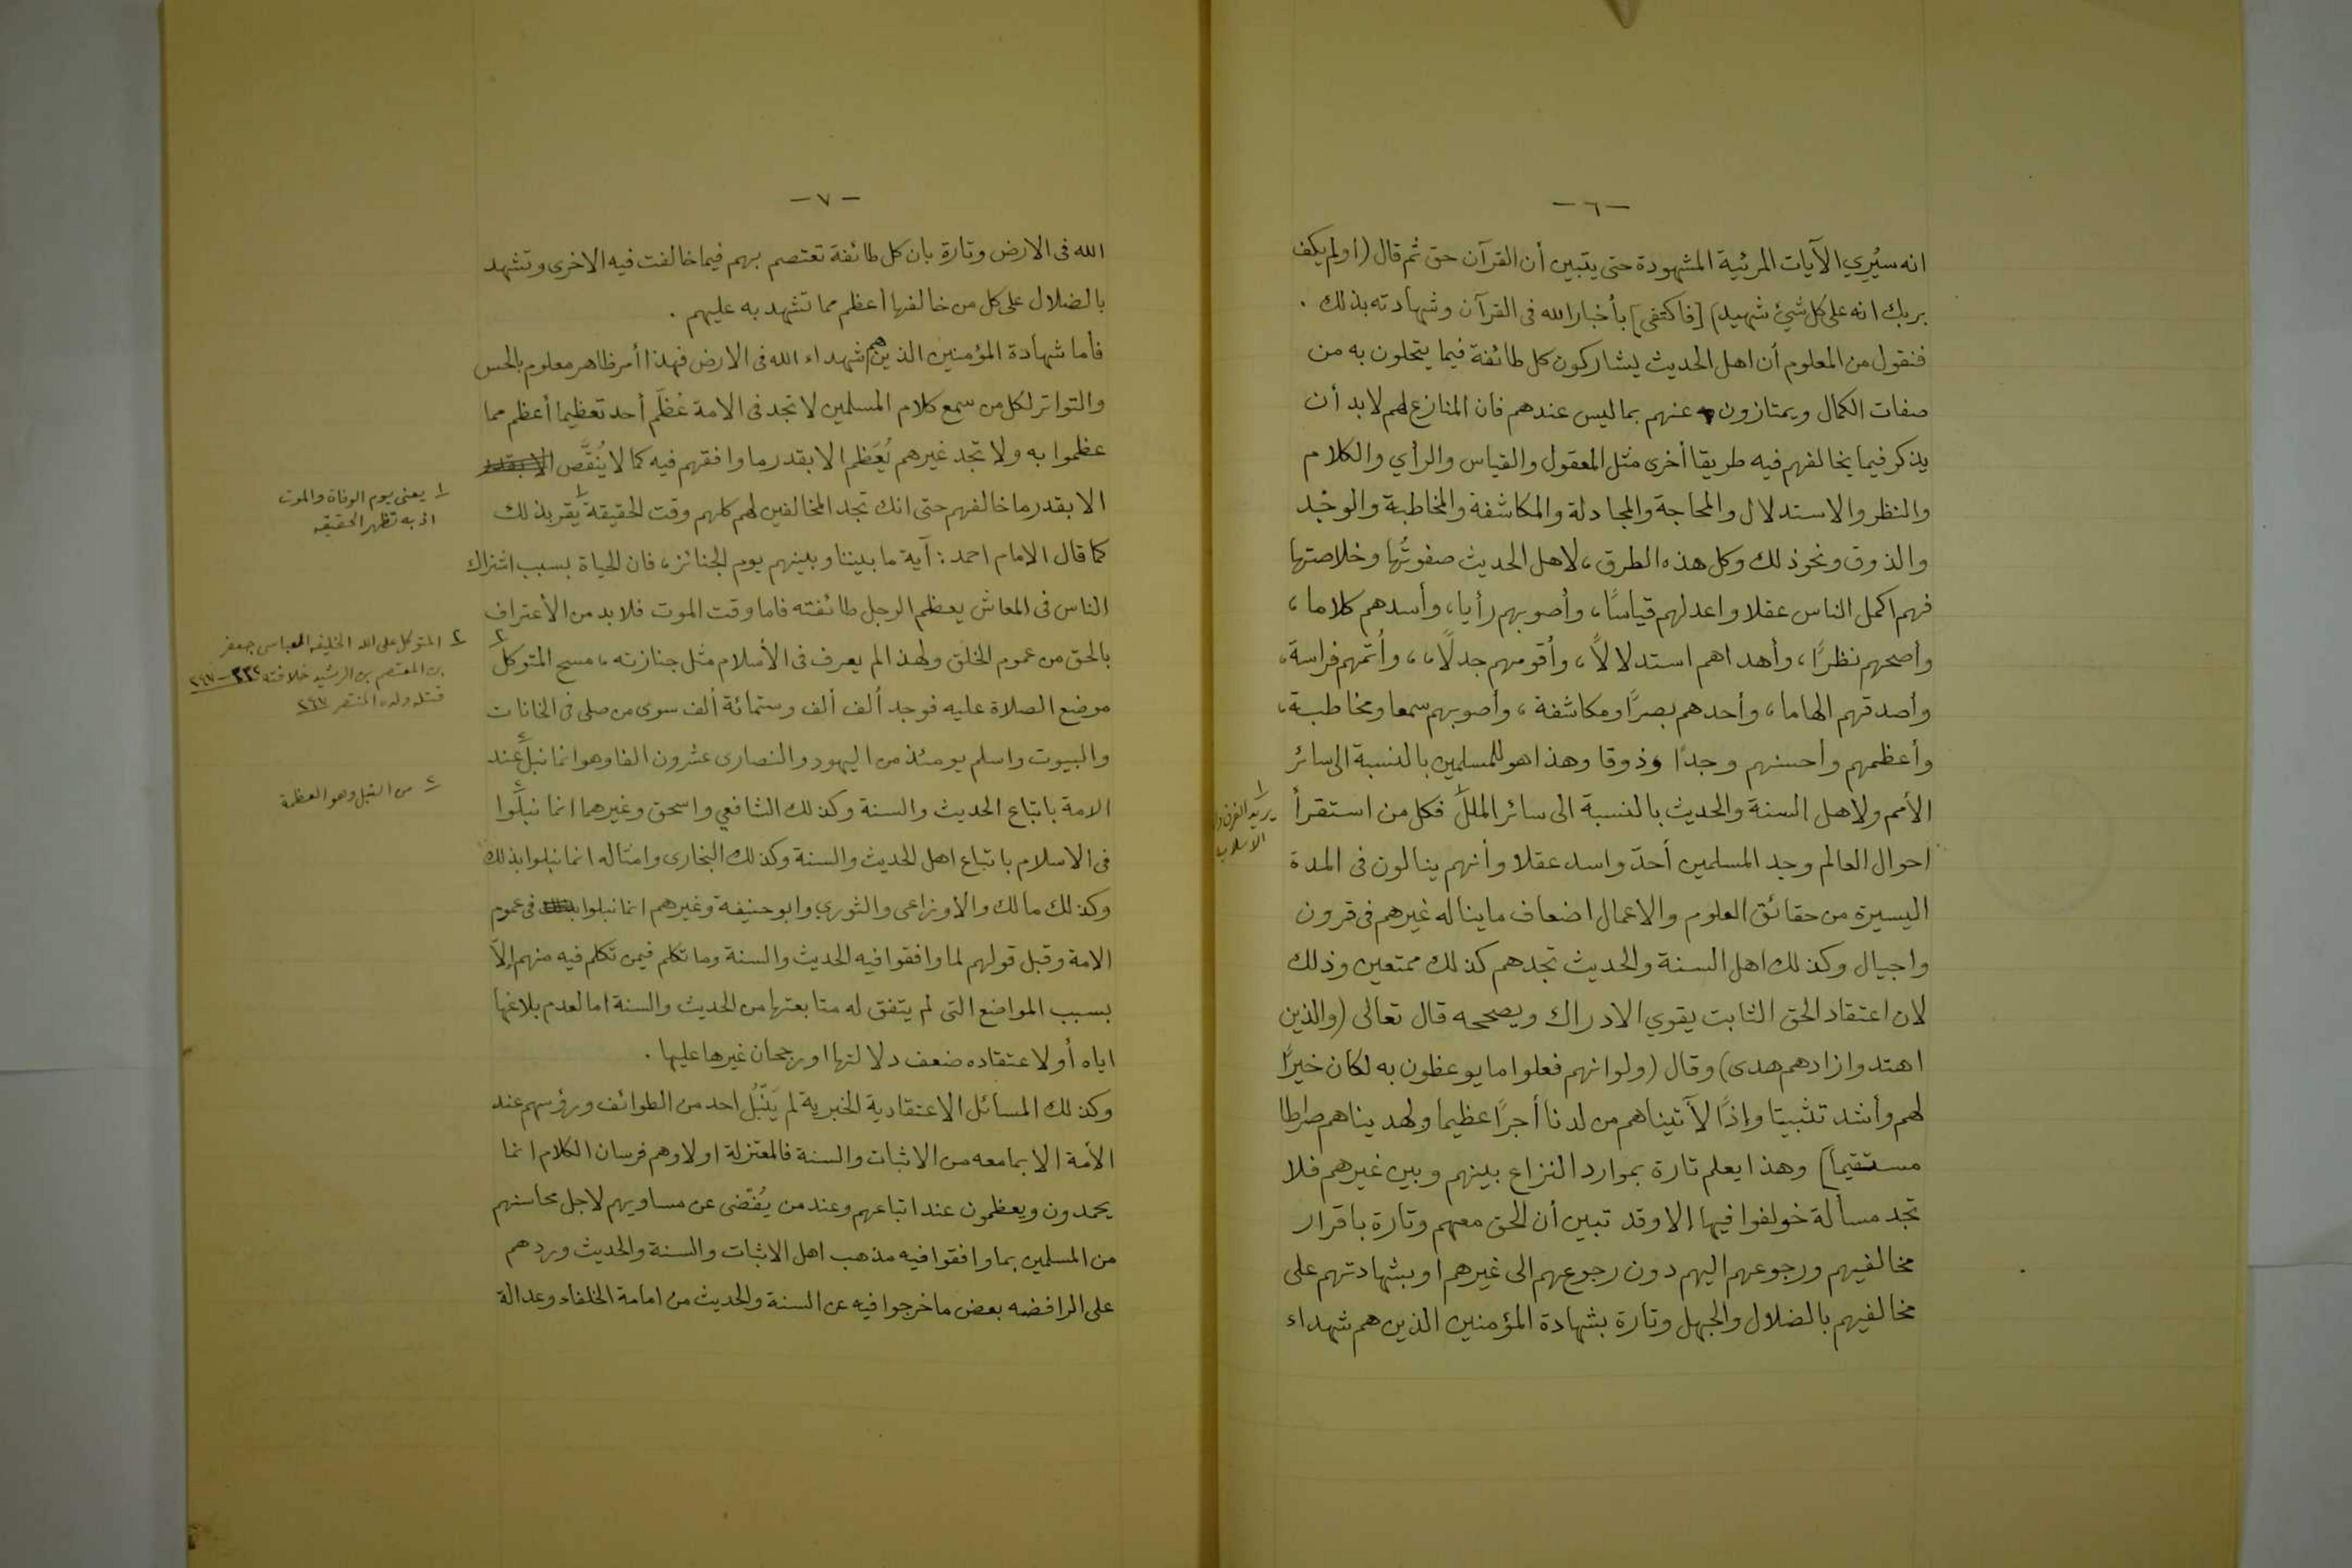 — ٦ —
انه سيُري الآيات المرئية المشهودة حتى يتبين أن القرآن حق ثم قال (اولم يكف
بربك انه على كل شيء شهيد) [فاكتفى] بأخبار الله فى القرآن وشهادته بذلك .
فنقول من المعلوم أن اهل الحديث يشاركون كل طائفة فيما يتحلون به من
صفات الكمال ويمتازون عنهم بما ليس عندهم فان المنازع لهم لا بد أن
يذكر فيما يخالفهم فيه طريقا أخرى مثل المعقول والقياس والرأي والكلام
والنظر والاستدلال والمحاجة والمجادلة والمكاشفة والمخاطبة والوجْد
والذوق ونحو ذلك وكل هذه الطرق، لاهل الحديث صفوتُها وخلاصتها
فهم اكمل الناس عقلا واعدلهم قياسًا، وأصوبهم رأيا، وأسدهم كلاما،
وأصحهم نظرًا، وأهداهم استدلالاً، وأقومهم جدلًا،، وأتمهم فراسة،
وأصدقهم الهاما، وأحدهم بصرًا ومكاشفة، وأصوبهم سمعا ومخاطبة،
وأعظمهم وأحسنهم وجدًا وذوقا وهذا هو للمسلمين بالنسبة الى سائر
الأمم ولاهل السنة والحديث بالنسبة الى سائر الملل١ فكل من استقرأ
احوال العالم وجد المسلمين أحدّ واسد عقلا وأنهم ينالون فى المدة
اليسيرة من حقائق العلوم والاعمال اضعاف ما يناله غيرهم فى قرون
واجيال وكذلك اهل السنة والحديث تجدهم كذلك ممتعين وذلك
لان اعتقاد الحق الثابت يقوي الادراك ويصححه قال تعالى (والذين
اهتدوا زادهم هدى) وقال (ولو انهم فعلوا ما يوعظون به لكان خيرًا
لهم وأشد تثبيتا وإذًا لآتيناهم من لدنا أجرًا عظيما ولهديناهم صراطا
مستقيما) وهذا يعلم تارة بموارد النزاع بينهم وبين غيرهم فلا
تجد مسألة خولفوا فيها إلا وقد تبين أن الحق معهم وتارة باقرار
مخالفيهم ورجوعهم اليهم دون رجوعهم الى غيرهم او بشهادتهم على
مخالفيهم بالضلال والجهل وتارة بشهادة المؤمنين الذين هم شهداء
١ يريد الفرق
— ٧ —
الله فى الارض وتارة بان كل طائفة تعتصم بهم فيما خالفت فيه الاخرى وتشهد
بالضلال على كل من خالفها أعظم مما تشهد به عليهم .
فأما شهادة المؤمنين الذين هم شهداء الله فى الارض فهذا أمر ظاهر معلوم بالحس
والتواتر لكل من سمع كلام المسلمين لا تجد فى الامة عُظّم أحد تعظيما أعظم مما
عظموا به ولا تجد غيرهم يُعَظم الا بقدر ما وافقهم فيه كما لا يُنقَّص الا بقدر
الا بقدر ما خالفهم حتى انك تجد المخالفين لهم كلهم وقت الحقيقة١ يقر بذلك
كما قال الامام احمد : آية ما بيننا وبينهم يوم الجنائز، فان الحياة بسبب اشتراك
الناس فى المعاش يعظم الرجل طائفته فاما وقت الموت فلا بد من الأعتراف
بالحق من عموم الخلق ولهذا لم يعرف فى الأسلام مثل جنازته، مسح المتوكل٢
موضع الصلاة عليه فوجد ألف ألف وستمائة ألف سوى من صلى فى الخانات
والبيوت واسلم يومئذ من اليهود والنصارى عشرون الفا وهو انما نبلَ عند
الامة باتباع الحديث والسنة وكذلك الشافعي واسحق وغيرهما انما نبلُوا
فى الاسلام باتباع اهل الحديث والسنة وكذلك البخارى وامثاله انما نبلوا بذلك
وكذلك مالك والأوزاعى والثوري وابو حنيفة وغيرهم انما نبلوا فى عموم
الامة وقبل قولهم لما وافقوا فيه الحديث والسنة وما تكلم فيمن تكلم فيه منهم إلاّ
بسبب المواضع التى لم يتفق له متابعتها من الحديث والسنة اما لعدم بلاغها
اياه أو لاعتقاده ضعف دلالتها او رجحان غيرها عليها .
وكذلك المسائل الاعتقادية الخبرية لم يَنْبُل احد من الطوائف ورؤسهم عند
الأمة الا بما معه من الاثبات والسنة فالمعتزلة اولا وهم فرسان الكلام انما
يحمدون ويعظمون عند اتباعهم وعند من يُغضى عن مساويهم لاجل محاسنهم
من المسلمين بما وافقوا فيه مذهب اهل الاثبات والسنة والحديث وردهم
على الرافضه بعض ما خرجوا فيه عن السنة والحديث من امامة الخلفاء وعدالة
١ يعنى يوم الوفاة والموت
اذ به تظهر الحقيقه
٢ المتوكل على الله الخليفه العباسى جعفر
بن المعتصم بن الرشيد خلافته ٢٣٢-٢٤٧
قتله ولده المنتصر ٢٤٧
من النبل وهو العظمة